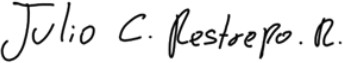 Julio C. Restrepo. R.